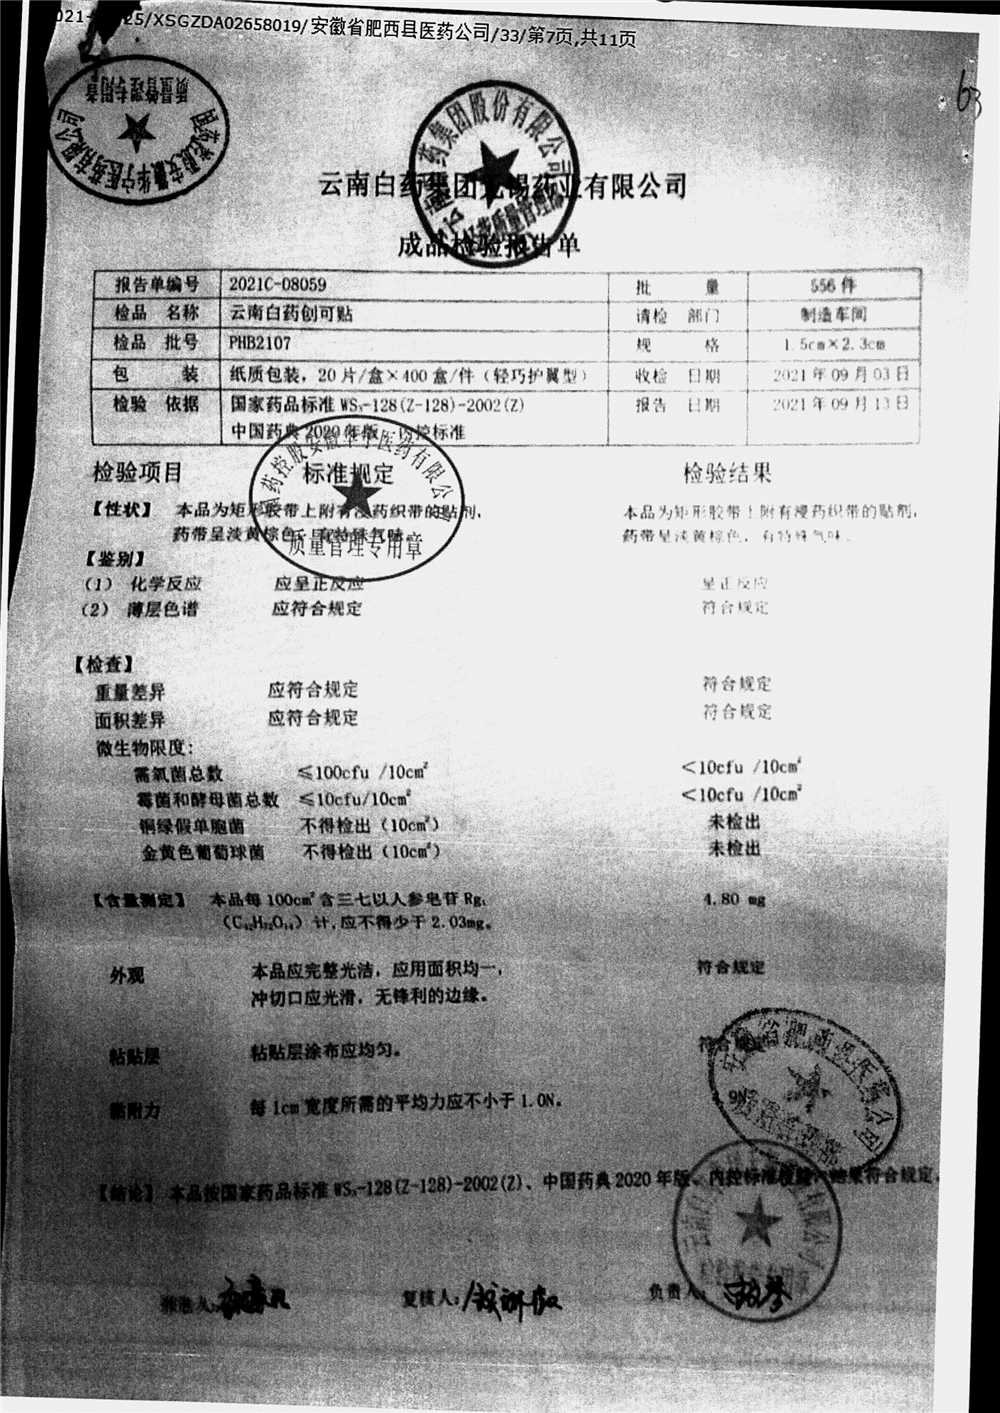 25/XSGZDA02658019/安徽省肥西县医药公司/33/第7页,共11页
63
国药控股安徽华宁医药有限公司
质量管理专用章
云南白药集团无锡药业有限公司
成品检验报告单
报告单编号 2021C-08059 批 量 556 件
检品 名称 云南白药创可贴 请检 部门 制造车间
检品 批号 PHB2107 规 格 1.5cm×2.3cm
包 装 纸质包装, 20 片/盒×400 盒/件（轻巧护翼型） 收检 日期 2021 年 09 月 03 日
检验 依据 国家药品标准 WS₃-128(Z-128)-2002(Z) 报告 日期 2021 年 09 月 13 日
中国药典 2020 年版、内控标准
检验项目 标准规定 检验结果
【性状】 本品为矩形胶带上附有浸药织带的贴剂, 本品为矩形胶带上附有浸药织带的贴剂,
药带呈淡黄棕色, 有特殊气味 药带呈淡黄棕色, 有特殊气味.
国药控股安徽华宁医药有限公司
质量管理专用章
【鉴别】
(1) 化学反应 应呈正反应 呈正反应
(2) 薄层色谱 应符合规定 符合规定
【检查】
重量差异 应符合规定 符合规定
面积差异 应符合规定 符合规定
微生物限度:
需氧菌总数 ≤100cfu /10cm² <10cfu /10cm²
霉菌和酵母菌总数 ≤10cfu/10cm² <10cfu /10cm²
铜绿假单胞菌 不得检出（10cm²） 未检出
金黄色葡萄球菌 不得检出（10cm²） 未检出
【含量测定】 本品每 100cm² 含三七以人参皂苷 Rg₁ 4.80 mg
(C₄₂H₇₂O₁₄) 计, 应不得少于 2.03mg。
外观 本品应完整光洁, 应用面积均一, 符合规定
冲切口应光滑, 无锋利的边缘。
粘贴层 粘贴层涂布应均匀。 符合规定
黏附力 每 1cm 宽度所需的平均力应不小于 1.0N。 4.9N
安徽省肥西县医药公司
【结论】 本品按国家药品标准 WS₃-128(Z-128)-2002(Z)、中国药典 2020 年版、内控标准检验, 结果符合规定.
复核人: 负责人: